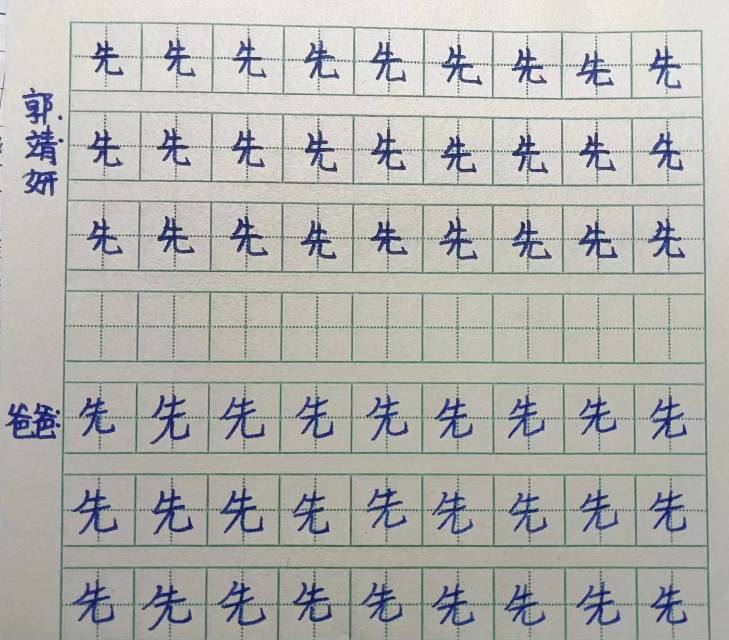 郭靖妍
先先先先先先先先先
先先先先先先先先先
先先先先先先先先先
爸爸
先先先先先先先先先
先先先先先先先先先
先先先先先先先先先